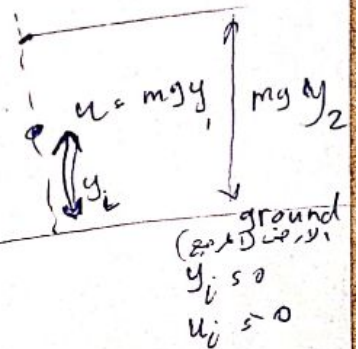 u = mgy₁
mgy₂
y₁
ground
الارض (المرجع)
yᵢ = 0
uᵢ = 0